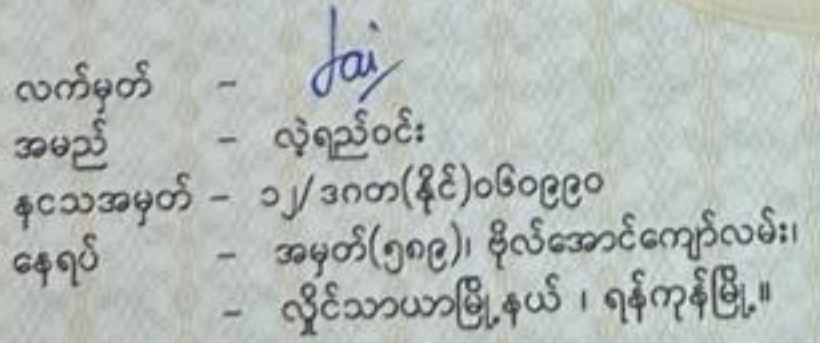 လက်မှတ် -
အမည် - လဲ့ရည်ဝင်း
နငသအမှတ် - ၁၂/ဒဂတ(နိုင်)၀၆၀၉၉၀
နေရပ် - အမှတ်(၅၈၉)၊ ဗိုလ်အောင်ကျော်လမ်း၊
- လှိုင်သာယာမြို့နယ် ၊ ရန်ကုန်မြို့။